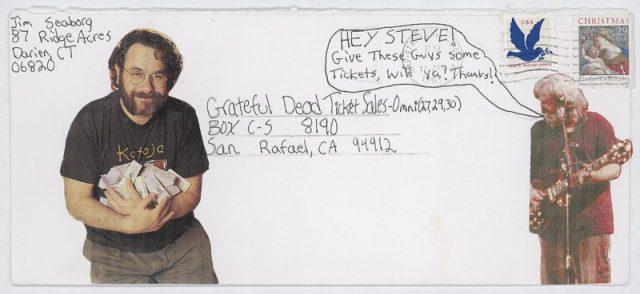 Jim Seaborg
87 Ridge Acres
Darien, CT
06820
HEY STEVE!
Give These Guys Some
Tickets, Will Ya? Thanks!
USA
CHRISTMAS
29
USA
Grateful Dead Ticket Sales-Omni(27,29,30)
BOX C-S 8190
San Rafael, CA 94912
Kotoja